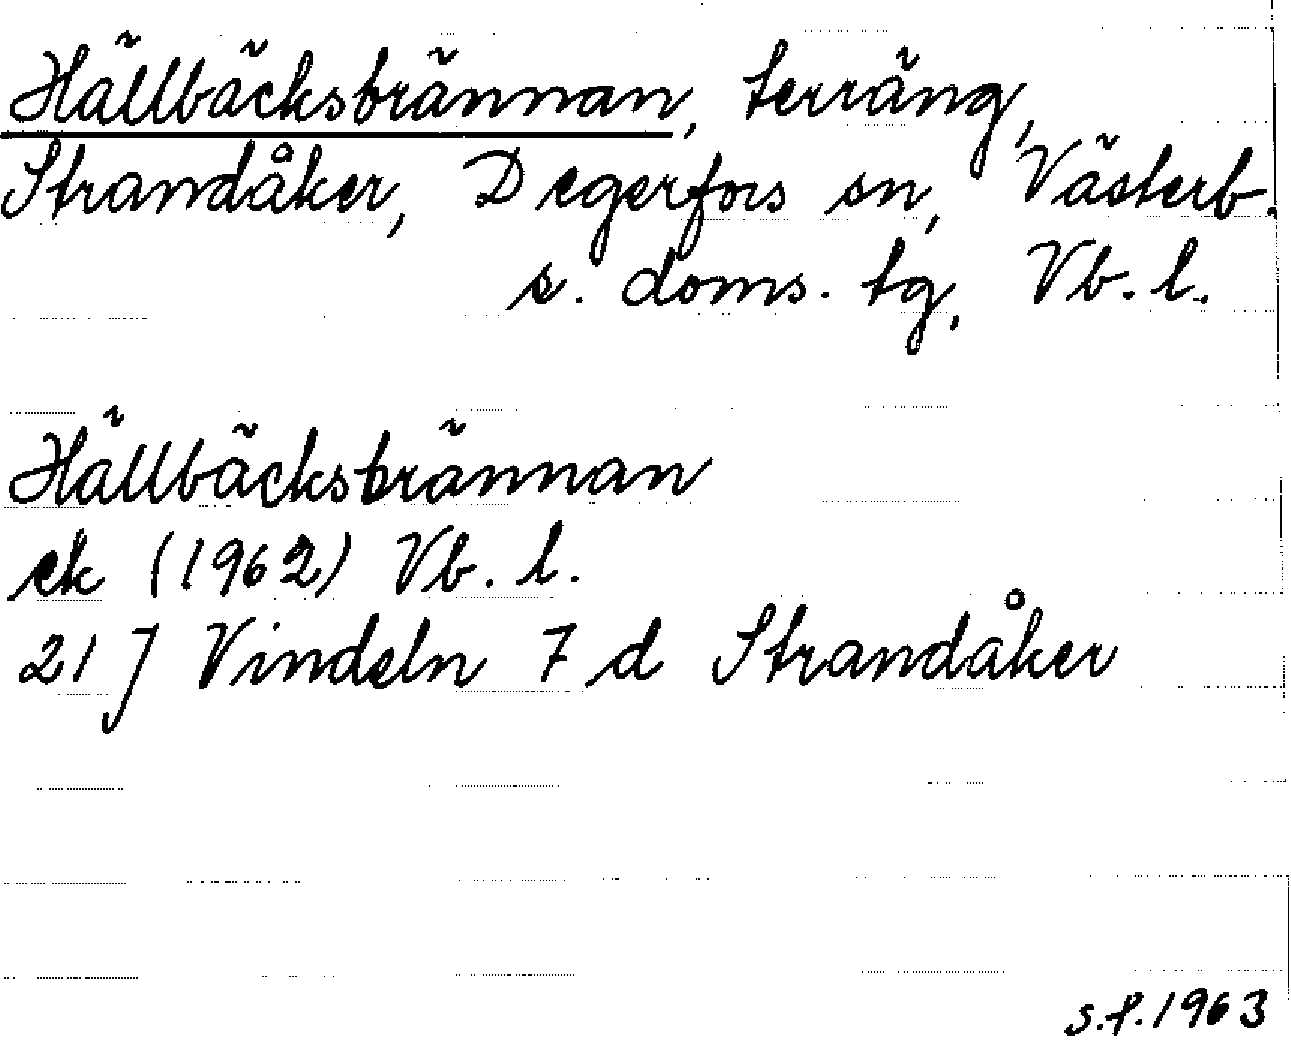 Hällbäcksbrännan, terräng,
Strandåker, Degerfors sn, Västerb.
s. doms. tg, Vb. l.
Hällbäcksbrännan
ek (1962) Vb. l.
21 J Vindeln 7 d Strandåker
s.f. 1963